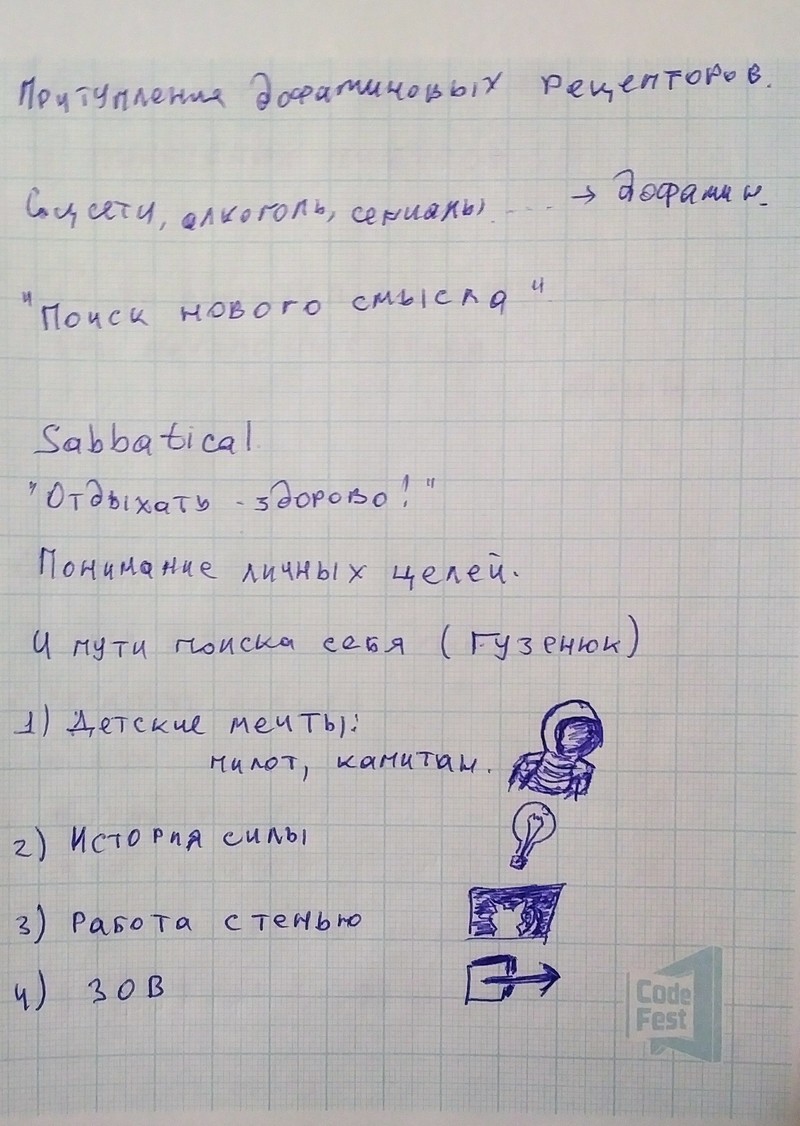 Притупления дофаминовых рецепторов.
Соцсети, алкоголь, сериалы .... → дофамин.
"Поиск нового смысла"
Sabbatical
"Отдыхать - здорово!"
Понимание личных целей.
4 пути поиска себя (Гузенюк)
1) Детские мечты:
пилот, капитан.
2) История силы
3) Работа с тенью
4) ЗОВ
Code
Fest